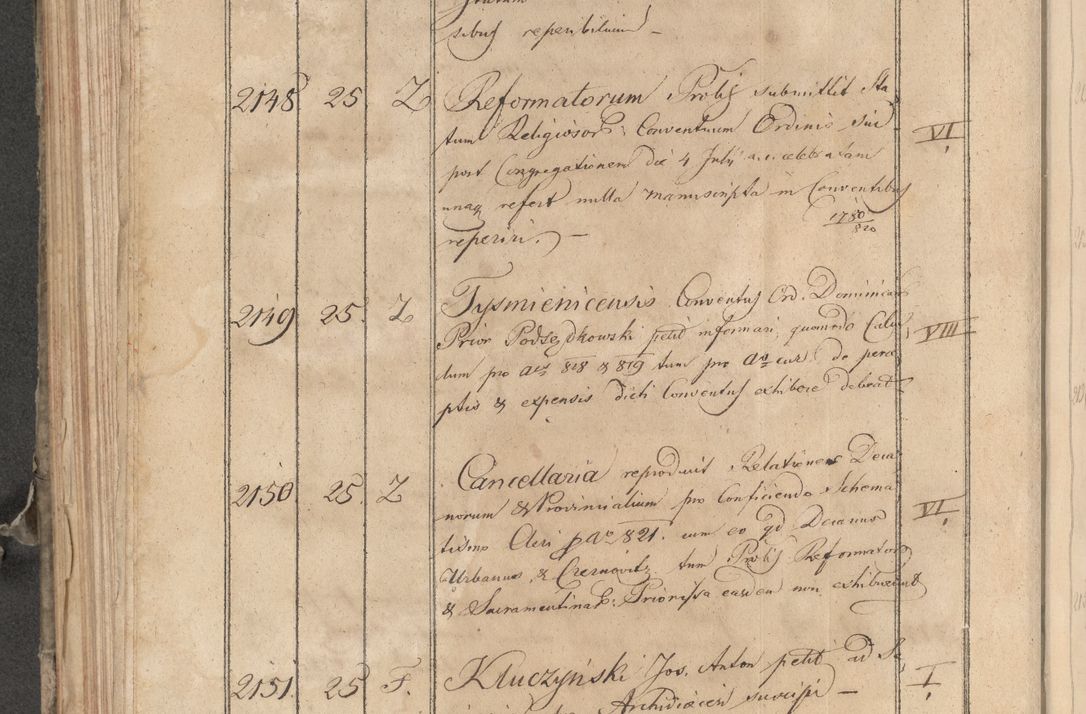 sibus reperibilium –
2148 25. Z Reformatorum Prolis submittit Sta
tum Religiosor: Conventuum Ordinis sui VI
post Congregationem die 4 Julii a. c. celebratam
unaq refert nulla manuscripta in Conventibus
reperiri. – 1750/820
2149 25. Z Tysmienicensis Conventus Ord. Dominican
Prior Podsędkowski petit informari, quomodo Calcu VIII
lum pro a̅is 818 & 819 tum pro a̅o cur. de perce
ptis & expensis dicti Conventus exhibere debeat
2150 25. Z Cancellaria reproducit Relationes Deca
norum & Provincialium pro Conficiendo Schema VI
tismo Cleri p a̅o 821. cum eo qd Decanus
Urbanus, & Czernovitz. tum Prolis Reformatorum
& Sacramentinar: Priorissa easdem non exhibuerint
2151. 25 F. Kluczyński Jos. Anton petit ad Se, I
Archidiœcesi suscipi –